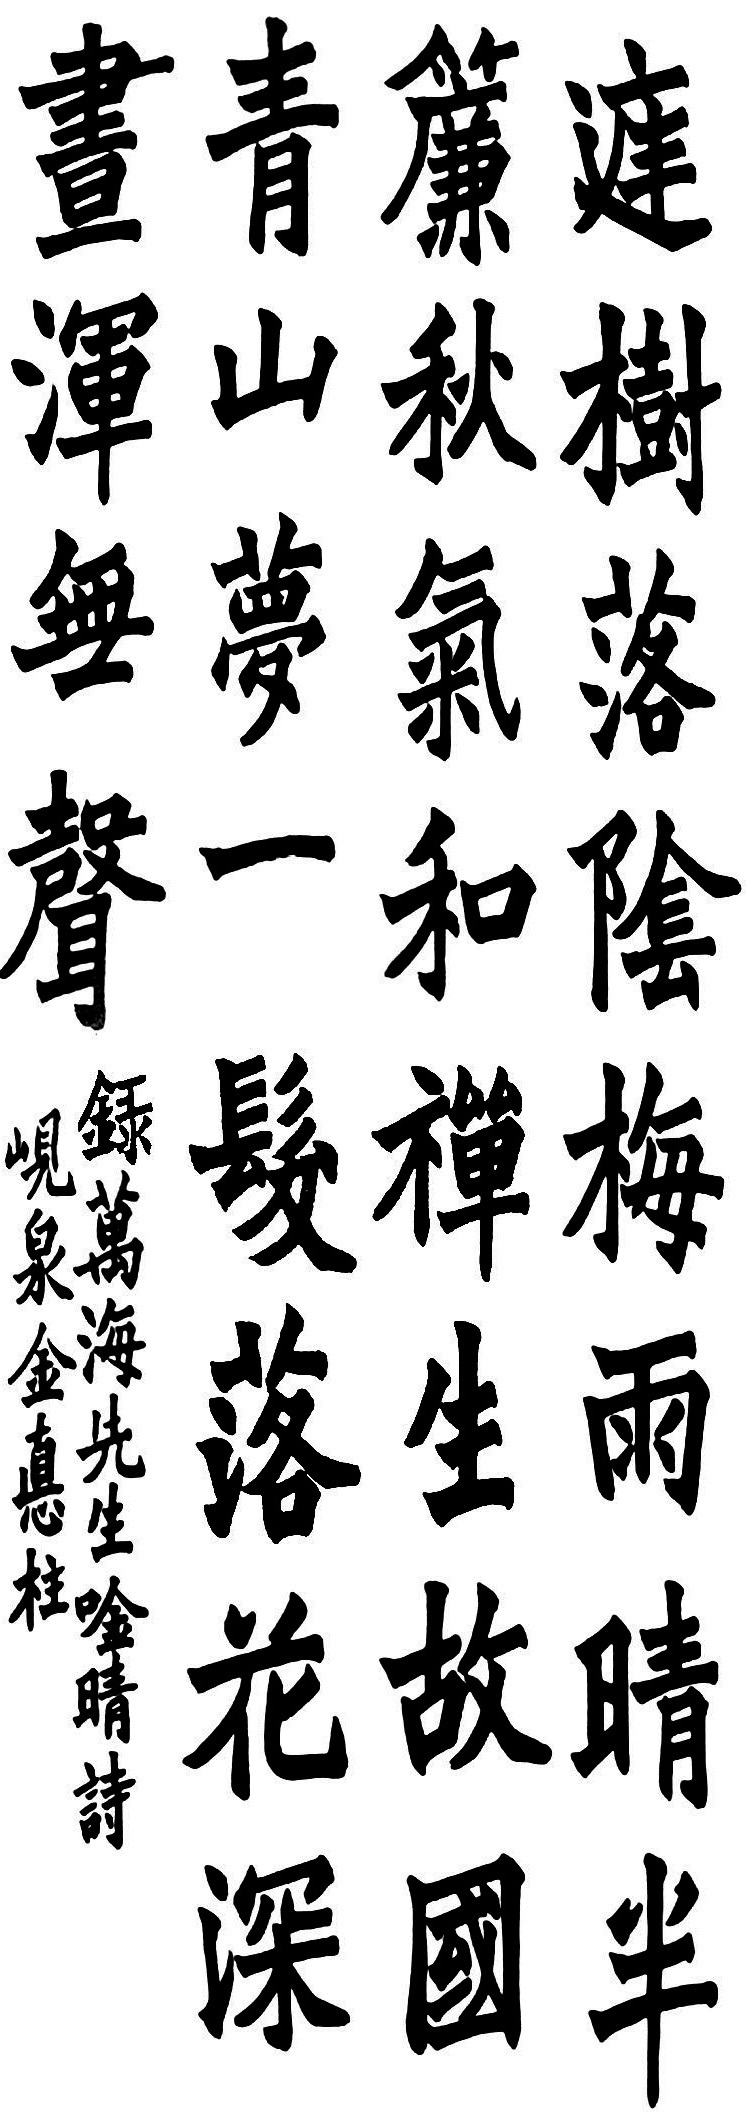 庭樹落陰梅雨晴半
簾秋氣和禪生故國
青山夢一髮落花深
晝渾無聲
錄萬海先生唫晴詩
峴泉金悳柱